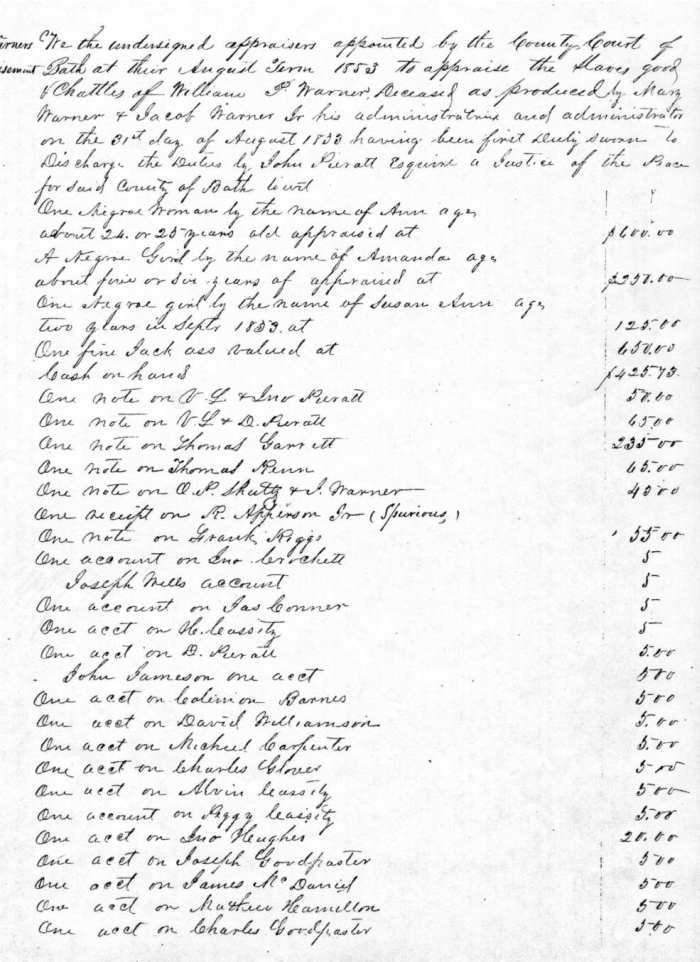 We the undersigned appraisers appointed by the County Court of
Bath at their August Term 1853 to appraise the Slaves good
& Chattles of William P. Warner, Deceased as produced by Mary
Warner & Jacob Warner Jr his administratrix and administrator
on the 31st day of August 1853 having been first Duly sworn to
Discharge the Duties by John Pieratt Esquire a Justice of the Peace
for said County of Bath towit
One Negroe Woman by the name of Ann age
about 24. or 25 years old appraised at $600.00
A Negroe Girl by the name of Amanda age
about five or six years of appraised at $250.00
One Negroe girl by the name of Susan Ann age
two years in Septr 1853. at 125.00
One fine Jack ass valued at 650.00
Cash on hand $425.73
One note on V L & Jno Pieratt 50.00
One note on V L & D. Pieratt 65.00
One note on Thomas Garrett 235.00
One note on Thomas 65.00
One note on & J. Warner 45.00
One receipt on R. Apperson Jr (Spurious,)
One note on Frank Riggs 55.00
One account on Jno. Crockett 5
Joseph Wells account 5
One account on Jas Conner 5
One acct on H. Cassity 5
One acct on D. Pieratt 5.00
John Jameson one acct 500
One acct on Barnes 500
One acct on David Williamson 5.00
One acct on Micheel Carpenter 5.00
One acct on Charles Glover 5.00
One acct on Alvin Cassity 500
One account on Peggy Cassity 5.00
One acct on Jno Hughes 20.00
One acct on Joseph Goodpaster 500
One acct on James McDaniel 500
One acct on Mathew Hamellon 500
One acct on Charles Goodpaster 500